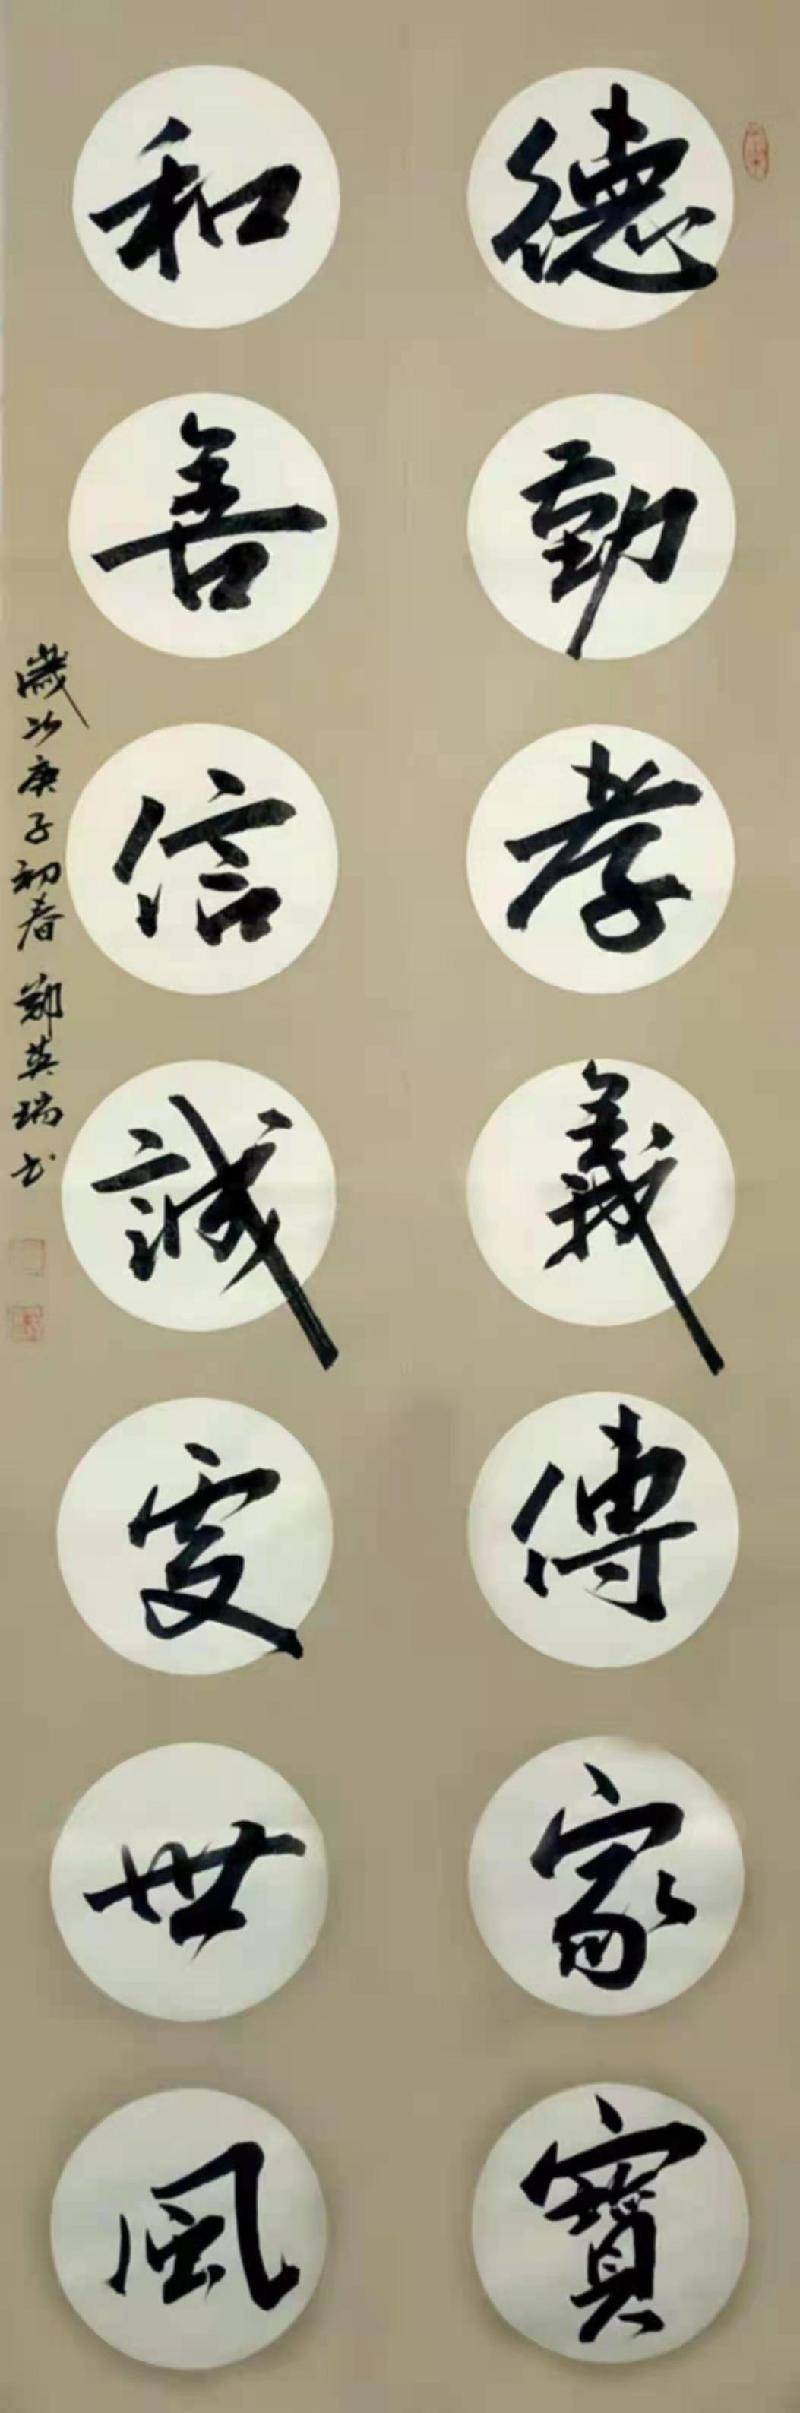 德勤孝義傳家寶
和善信誠處世風
歲次庚子初春 鄭英瑞书